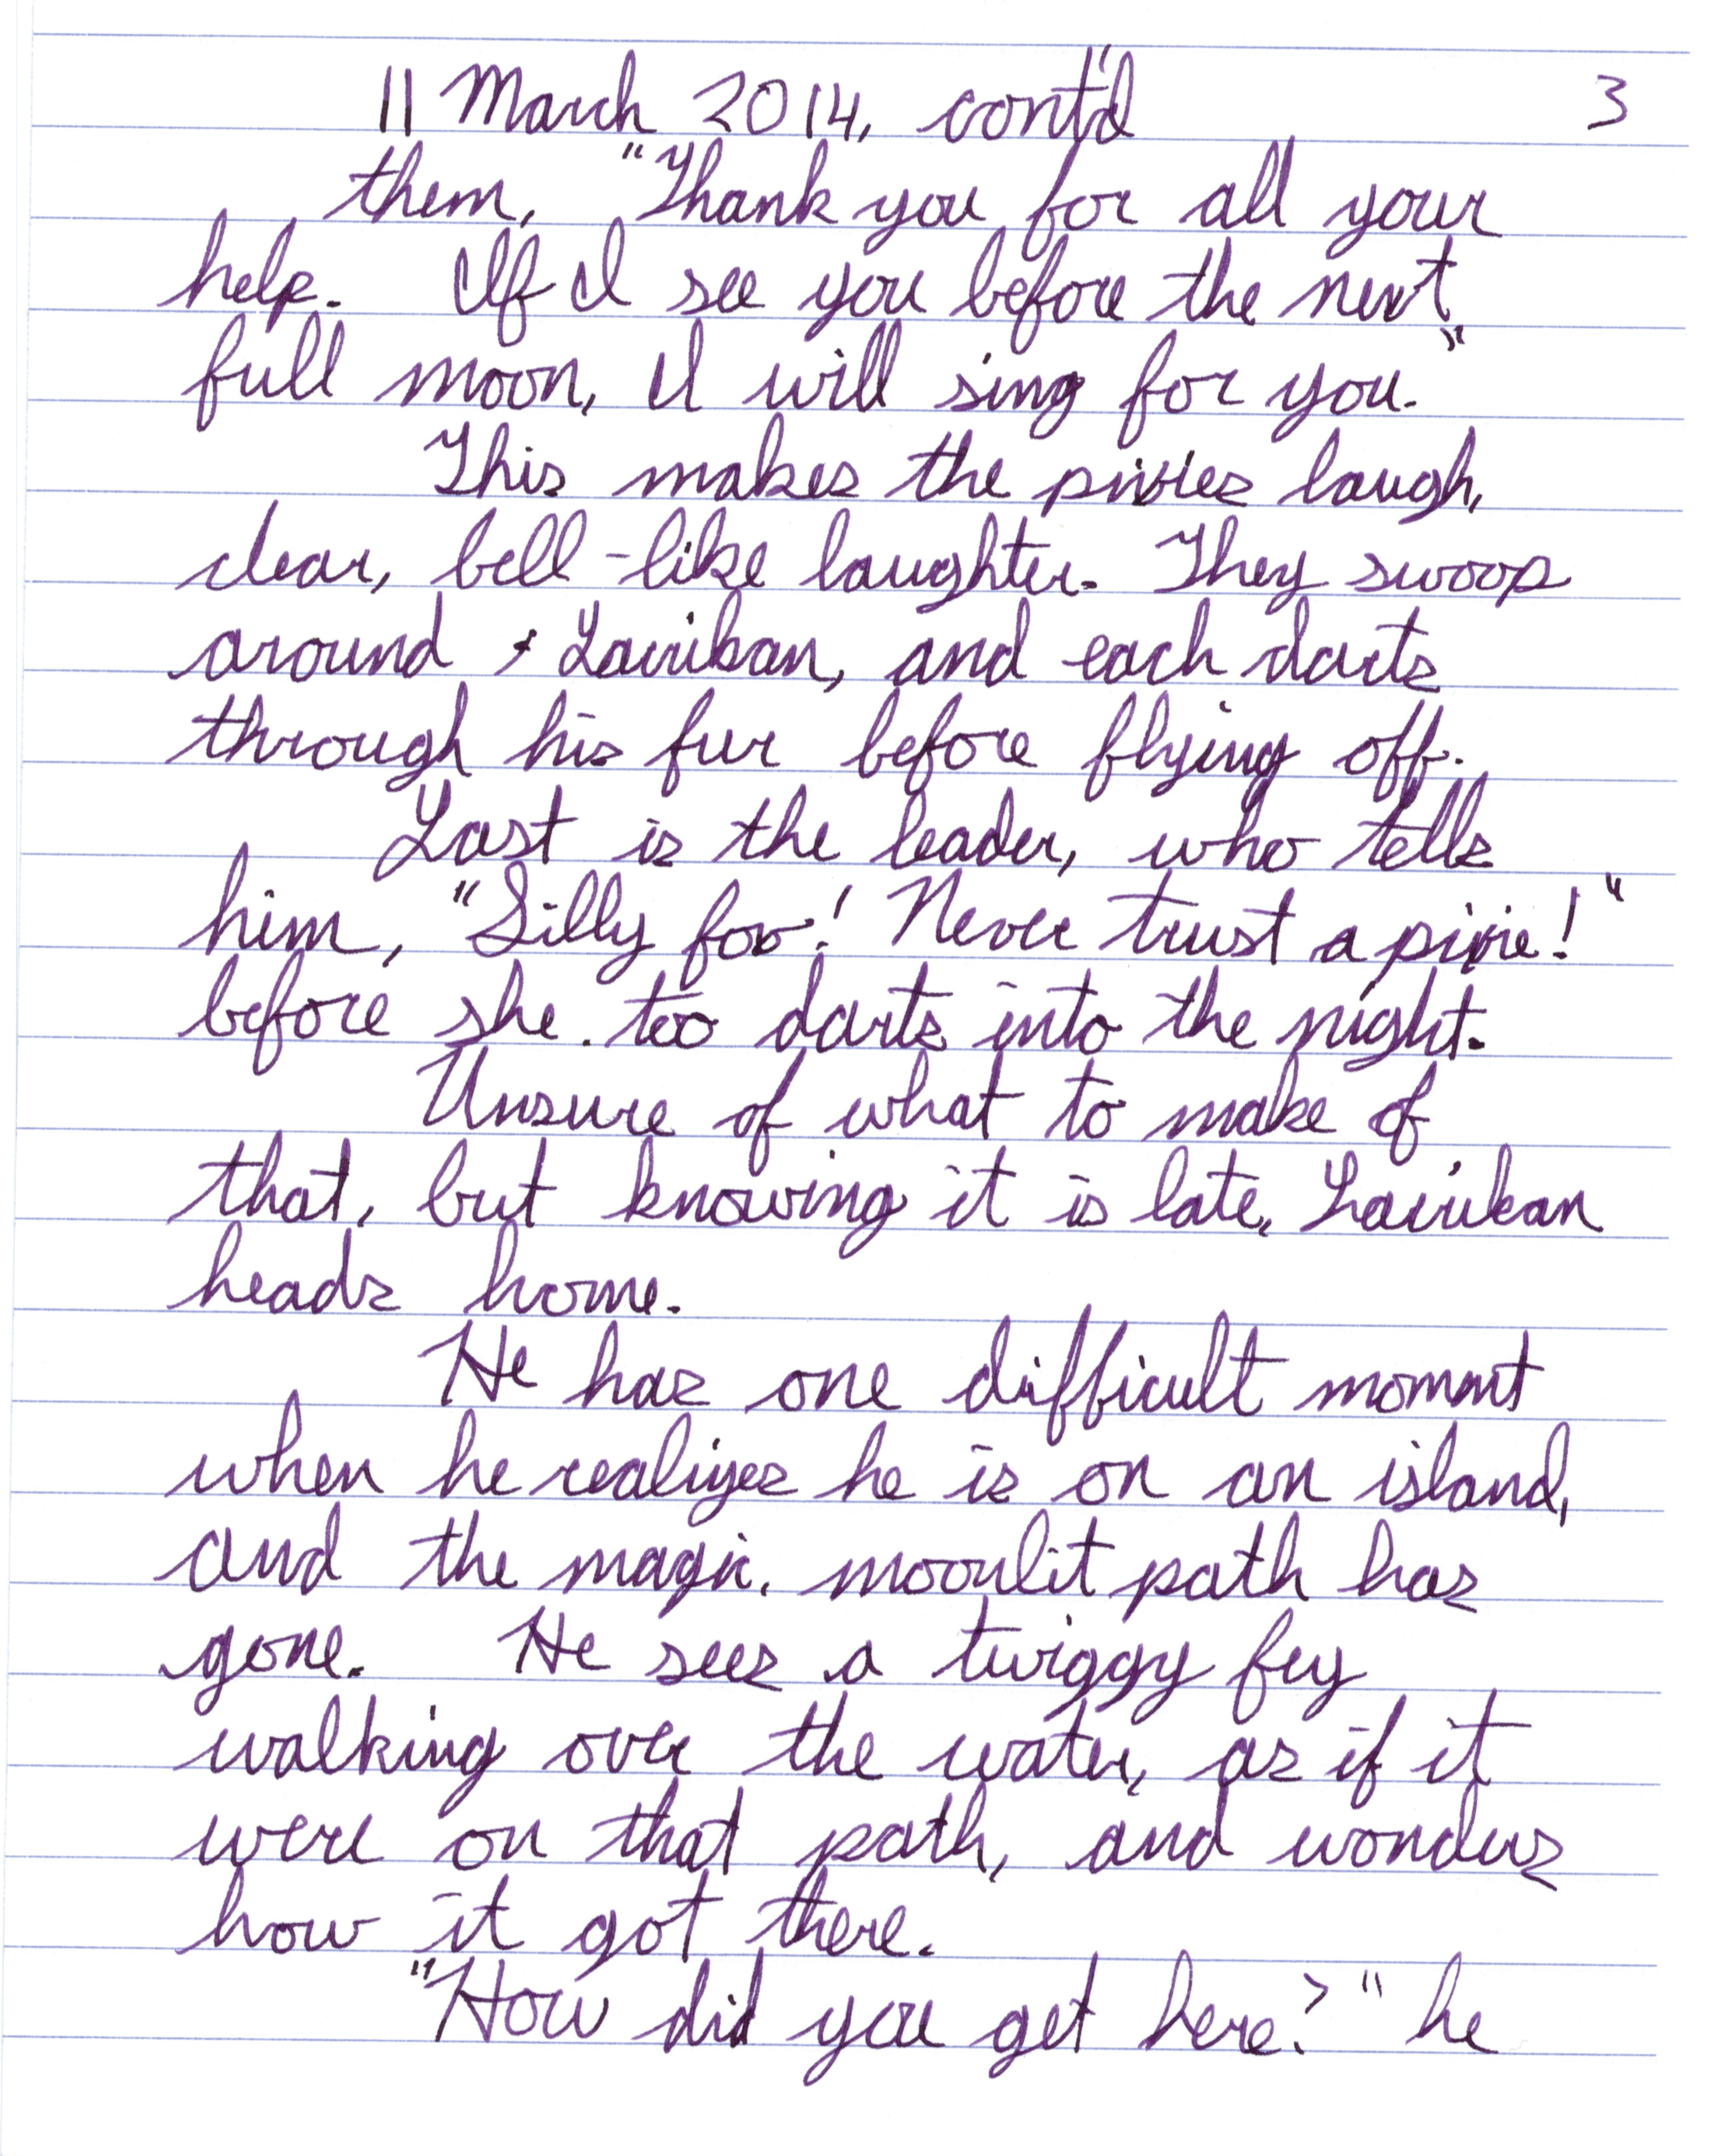 11 March 2014, cont'd 3
them, "Thank you for all your
help. If I see you before the next
full moon, I will sing for you."
This makes the pixies laugh,
clear, bell-like laughter. They swoop
around Lairikan, and each darts
through his fur before flying off.
Last is the leader, who tells
him, "Silly fox! Never trust a pixie!"
before she too darts into the night.
Unsure of what to make of
that, but knowing it is late, Lairikan
heads home.
He has one difficult moment
when he realizes he is on an island,
and the magic, moonlit path has
gone. He sees a twiggy fey
walking over the water, as if it
were on that path, and wonders
how it got there.
"How did you get here?" he